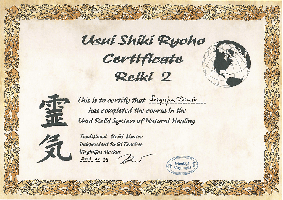 Usui Shiki Ryoho
Certificate
Reiki 2
靈
氣
This is to certify that
has completed the course in the
Usui Reiki System of Natural Healing
Traditional Reiki Master
Independent Reiki Teacher